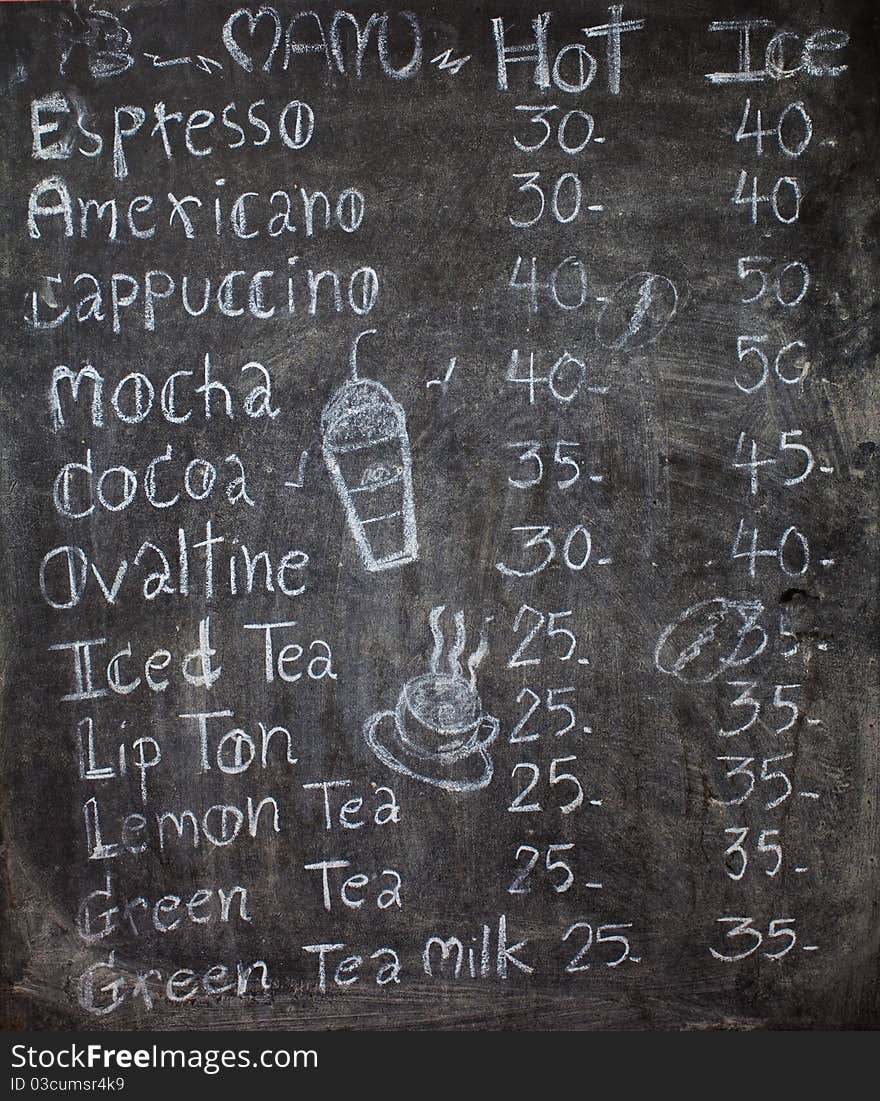 MANU Hot Ice
Espresso 30.- 40.-
Americano 30.- 40
Cappuccino 40.- 50
Mocha 40.- 50.
Cocoa 35.- 45.-
Ovaltine 30.- 40.-
Iced Tea 25.- 35.-
Lip Ton 25.- 35.-
Lemon Tea 25.- 35.-
Green Tea 25.- 35.-
Green Tea milk 25.- 35.-
StockFreeImages.com
ID 03cumsr4k9